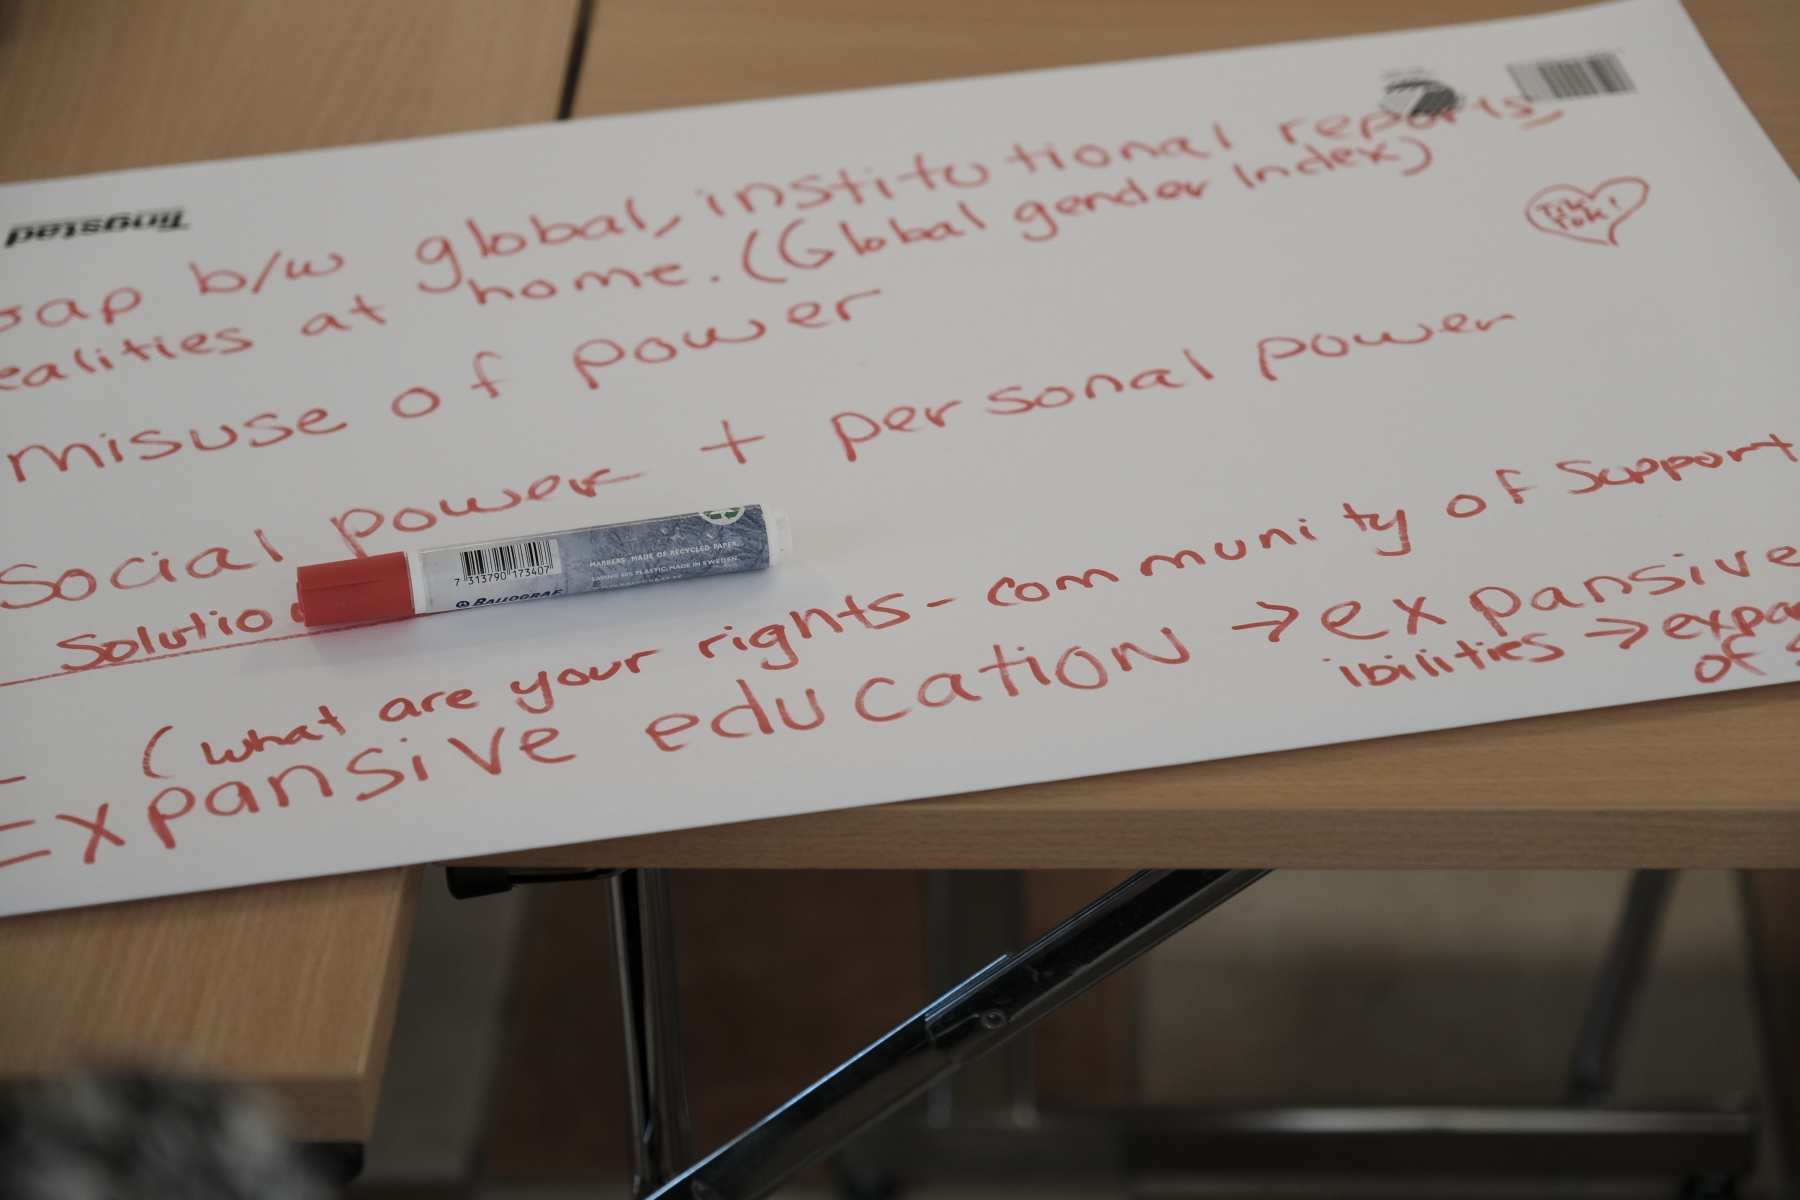 Tingstad
gap b/w global, institutional reports,
ealities at home. (Global gender Index)
Tik
Tok!
misuse of power
Social power + personal power
Solutio
7 313790 173407
BALLOGRAF
MARKERS MADE OF RECYCLED PAPER
PLASTIC. MADE IN SWEDEN
(what are your rights - community of support
Expansive education → expansive
ibilities → expa
of